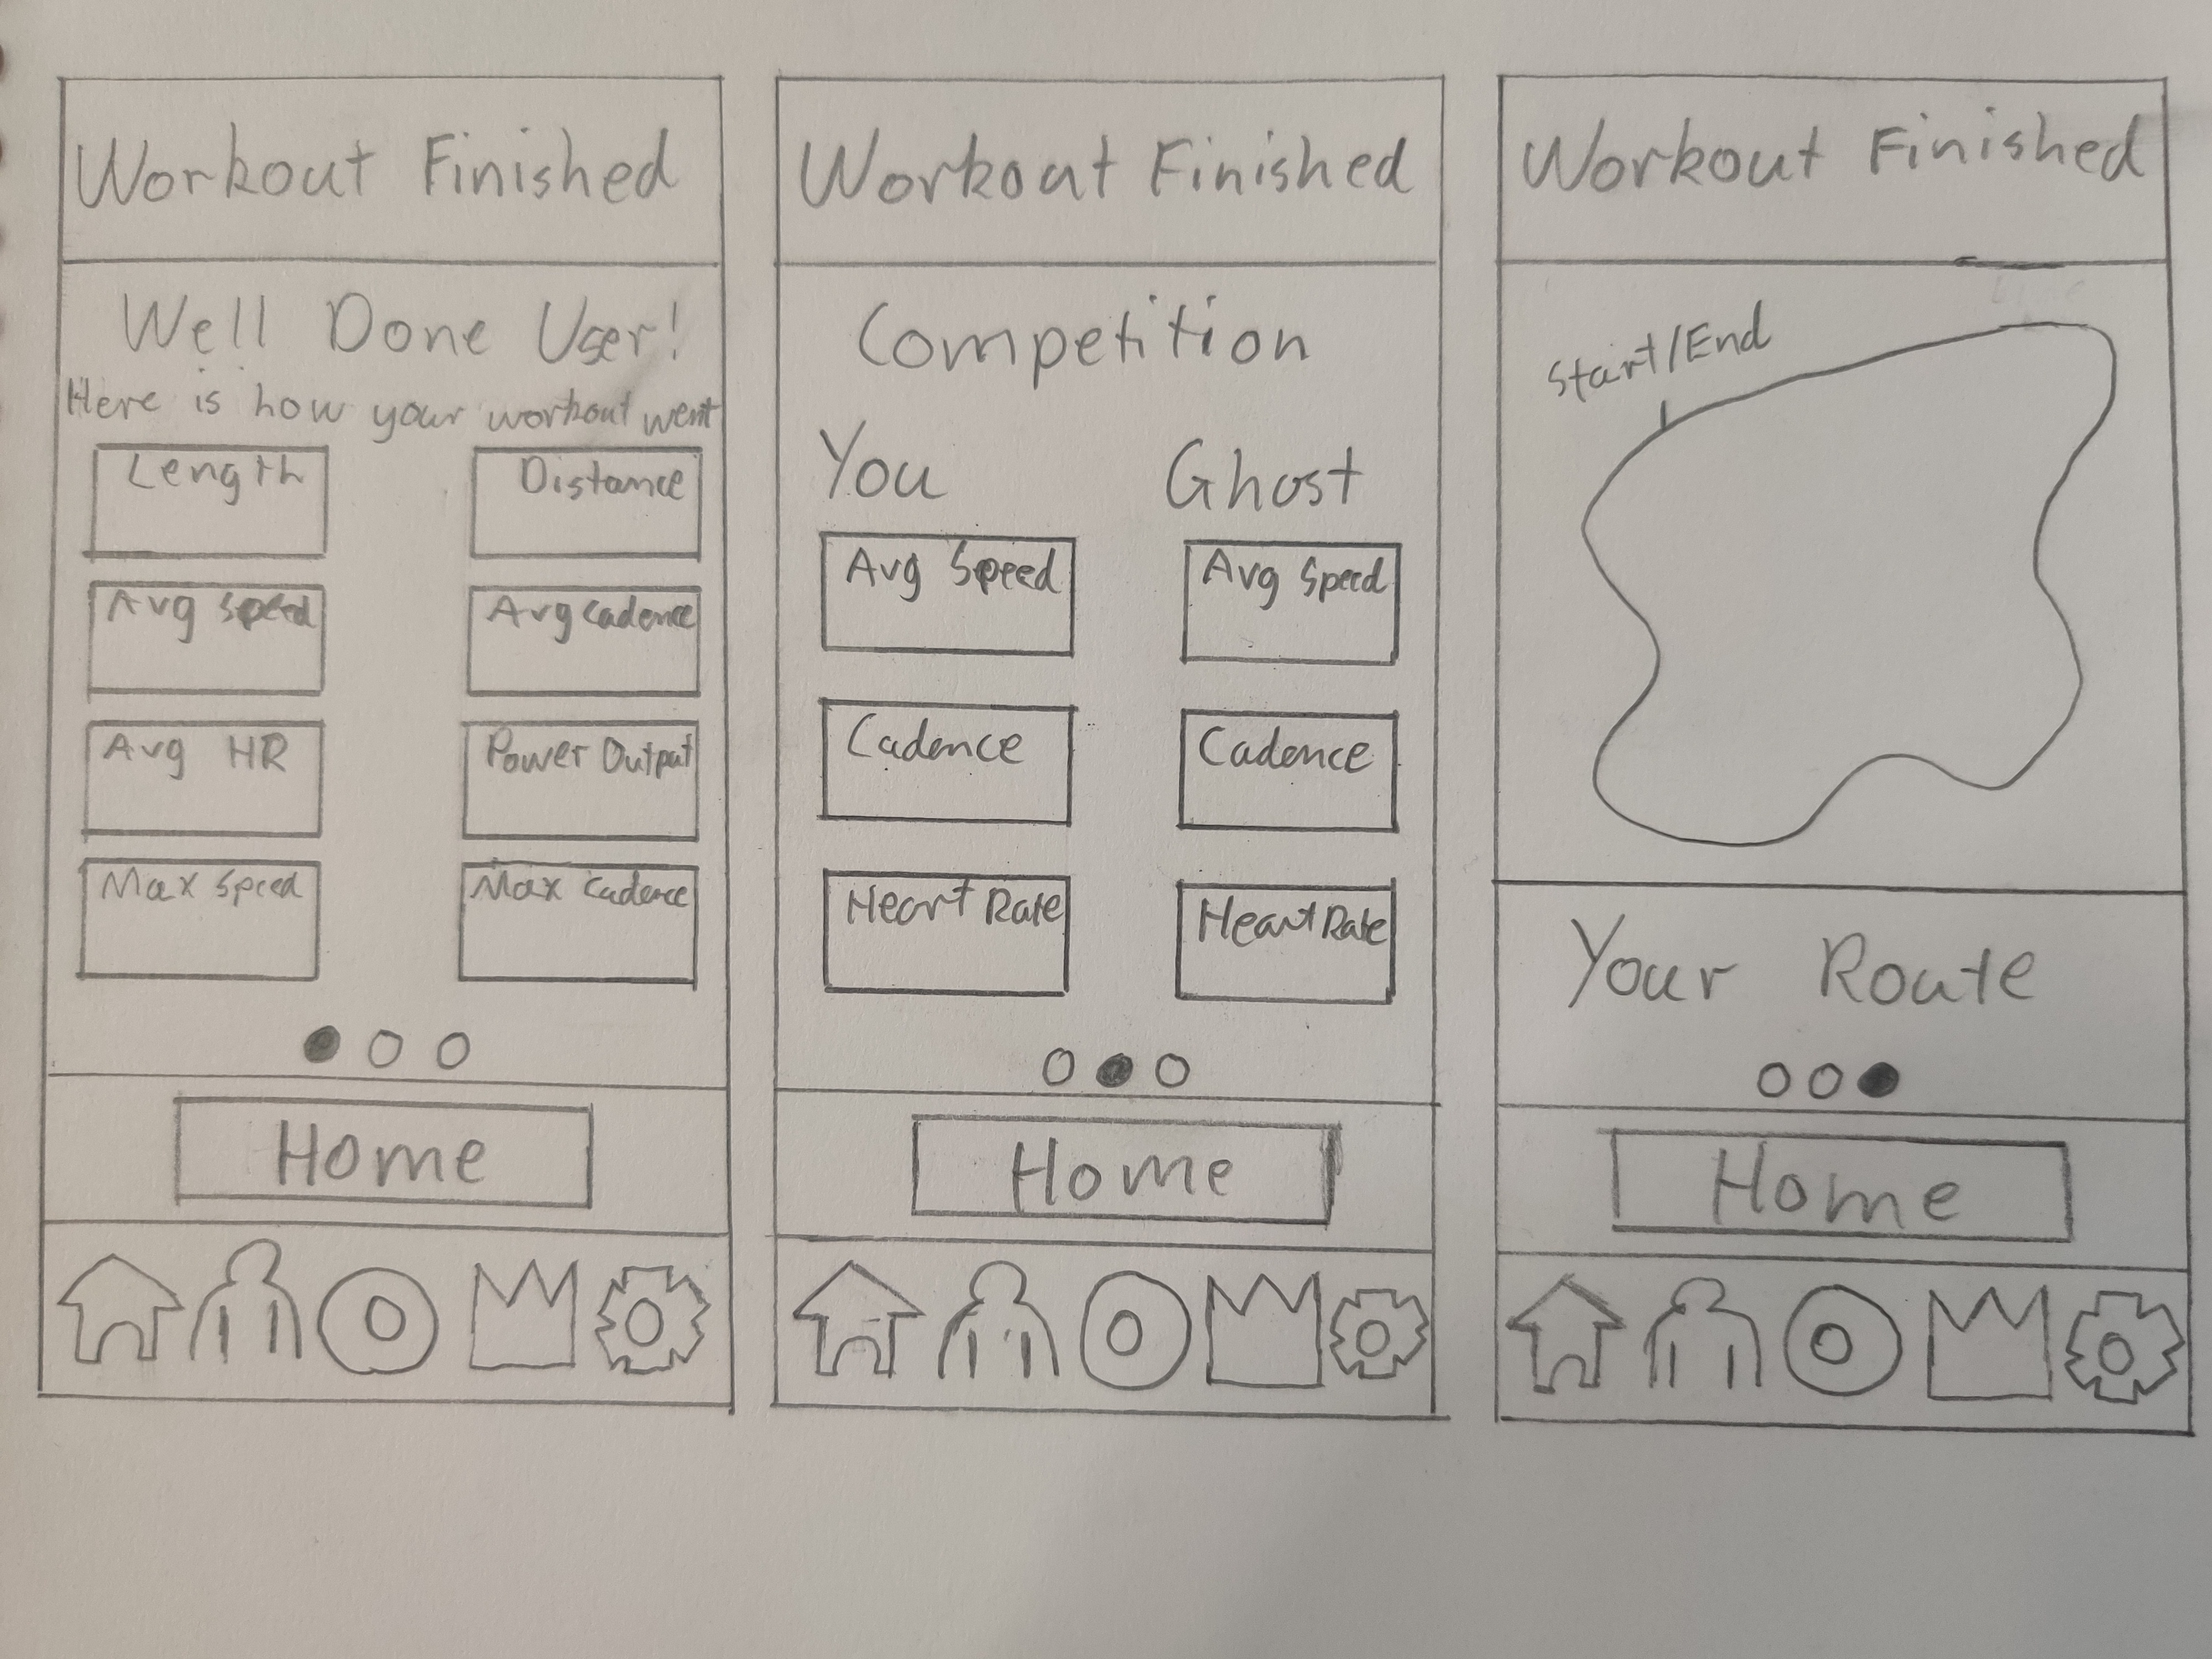 Workout Finished
Well Done User!
Here is how your workout went
Length
Distance
Avg Speed
Avg Cadence
Avg HR
Power Output
Max Speed
Max Cadence
Home
Workout Finished
Competition
You
Ghost
Avg Speed
Avg Speed
Cadence
Cadence
Heart Rate
Heart Rate
Home
Workout Finished
Start/End
Your Route
Home